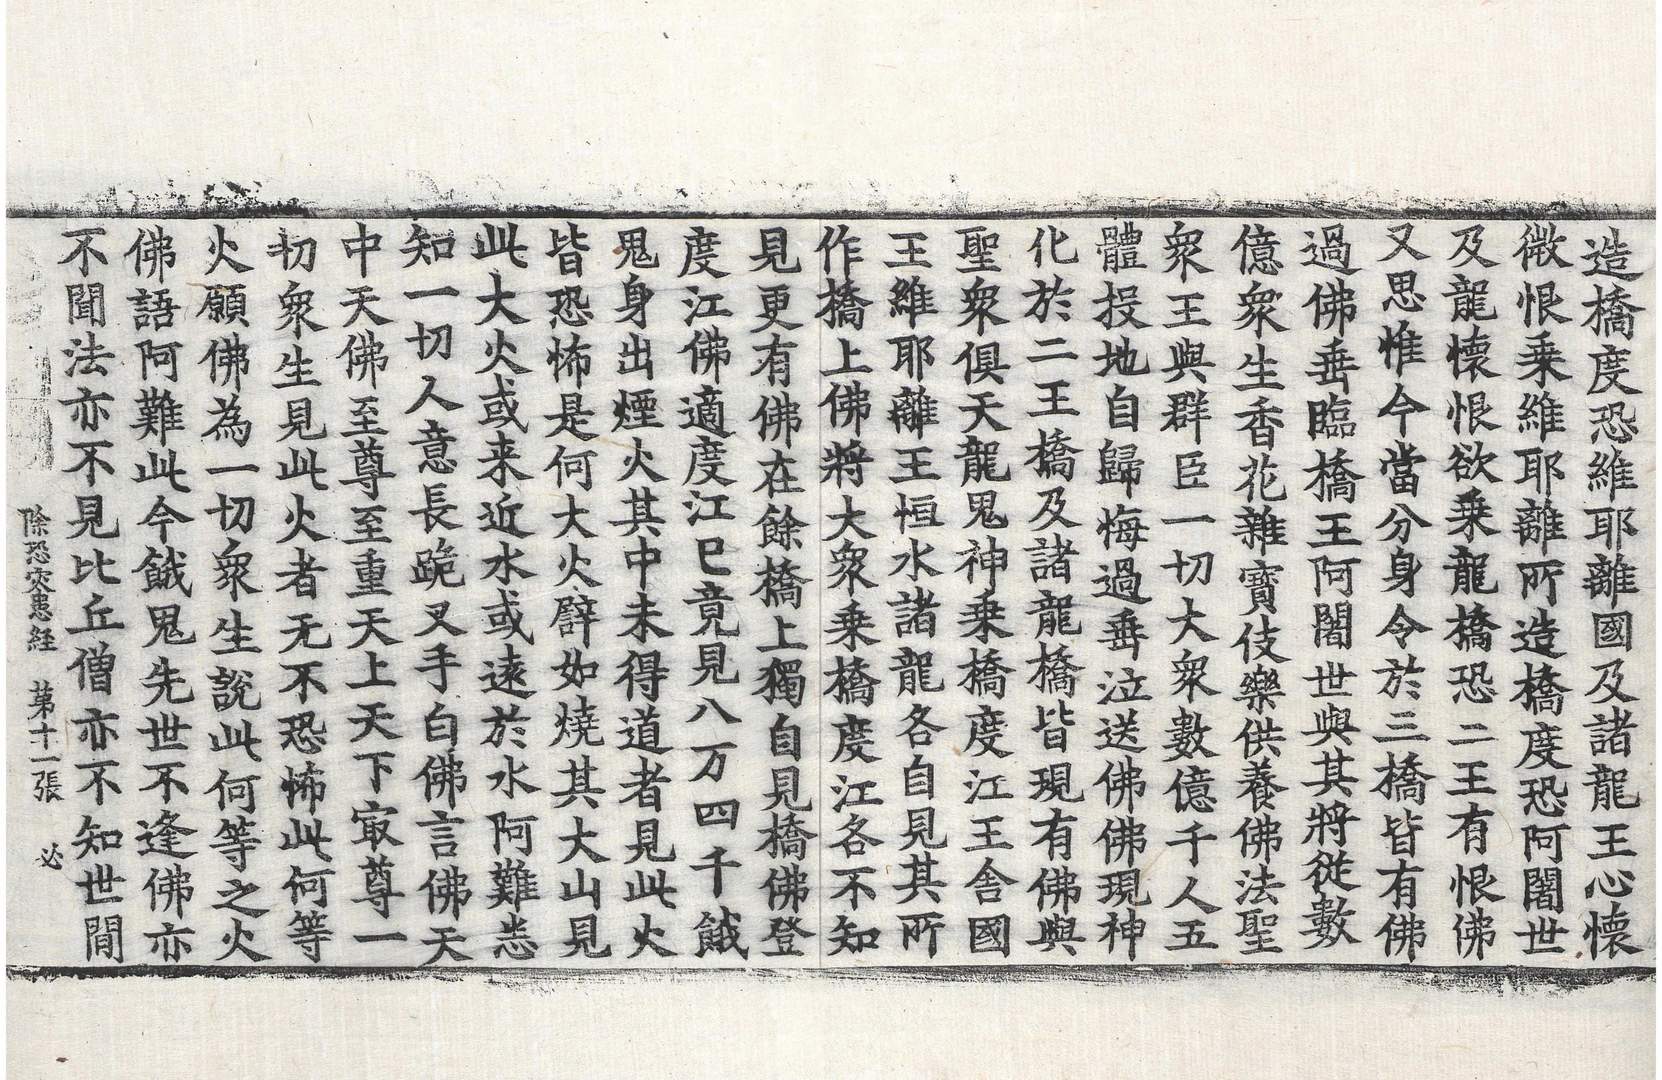 造橋度恐維耶離國及諸龍王心懷
微恨乗維耶離所造橋度恐阿闍世
及龍懷恨欲乗龍橋恐二王有恨佛
又思惟今當分身令於三橋皆有佛
過佛垂臨橋王阿闍世與其將從數
億衆生香花雜寶伎樂供養佛法聖
衆王與群臣一切大衆數億千人五
體投地自歸悔過垂泣送佛佛現神
化於二王橋及諸龍橋皆現有佛與
聖衆俱天龍鬼神乗橋度江王舍國
王維耶離王恒水諸龍各自見其所
作橋上佛將大衆乗橋度江各不知
見更有佛在餘橋上獨自見橋佛登
度江佛適度江已竟見八万四千餓
鬼身出煙火其中未得道者見此火
皆恐怖是何大火譬如燒其大山見
此大火或来近水或遠於水阿難悉
知一切人意長跪叉手白佛言佛天
中天佛至尊至重天上天下㝡尊一
切衆生見此火者无不恐怖此何等
火願佛為一切衆生說此何等之火
佛語阿難此今餓鬼先世不逢佛亦
不聞法亦不見比丘僧亦不知世間
除恐灾患経　第十一張　必